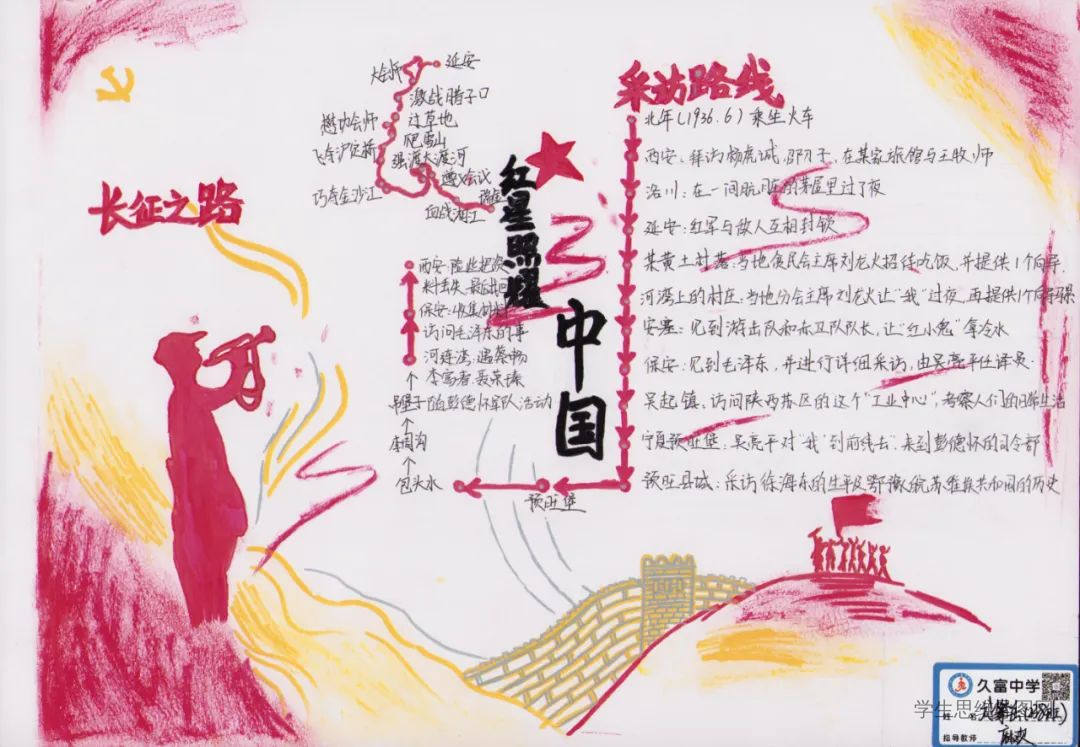 长征之路
延安
大会师
激战腊子口
过草地
懋功会师
爬雪山
飞夺泸定桥
强渡大渡河
遵义会议
巧夺金沙江
瑞金
血战湘江
红星照耀
中国
采访路线
北年(1936.6) 乘坐火车
西安：拜访杨虎城、邵力子，在某家旅馆与王牧师
洛川：在一间肮脏的茅屋里过了夜
延安：红军与敌人互相封锁
某黄土村落：当地贫民会主席刘龙火招待吃饭，并提供1个向导
河湾上的村庄：当地分会主席刘龙火让“我”过夜，再提供1个向导
安塞：见到游击队和赤卫队队长，让“红小鬼”拿冷水
保安：见到毛泽东，并进行详细采访，由吴亮平任译员
吴起镇：访问陕西苏区的这个“工业中心”，考察人们的日常生活
宁夏预旺堡：吴亮平对“我”到前线去，来到彭德怀的司令部
预旺县城：采访徐海东的生平及鄂豫皖苏维埃共和国的历史
预旺堡
包头水
李周沟
吊堡子 随彭德怀军队活动
李富春、聂荣臻
河连湾：遇蔡畅
访问毛泽东
保安：收集材料
西安：
久富中学
学生思维导图
姓名
指导教师